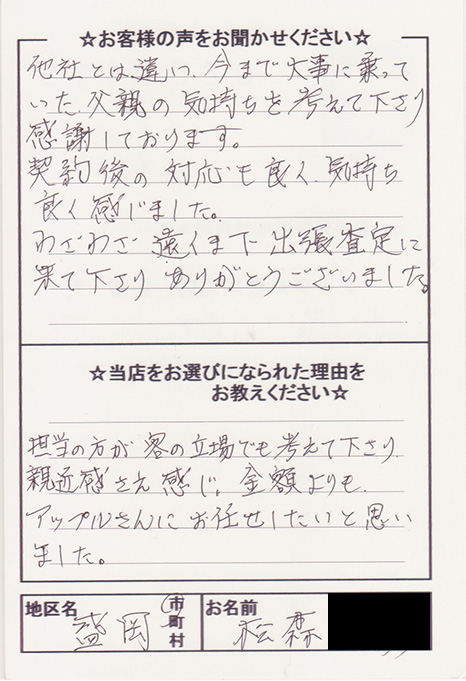 ☆お客様の声をお聞かせください☆
他社とは違い、今まで大事に乗って
いた父親の気持ちを考えて下さり
感謝しております。
契約後の対応も良く、気持ち
良く感じました。
わざわざ遠くまで出張査定に
来て下さりありがとうございました。
☆当店をお選びになられた理由を
お教えください☆
担当の方が客の立場でも考えて下さり、
親近感さえ感じ、金額よりも、
アップルさんにお任せしたいと思い
ました。
地区名 盛岡 市町村 お名前 松森